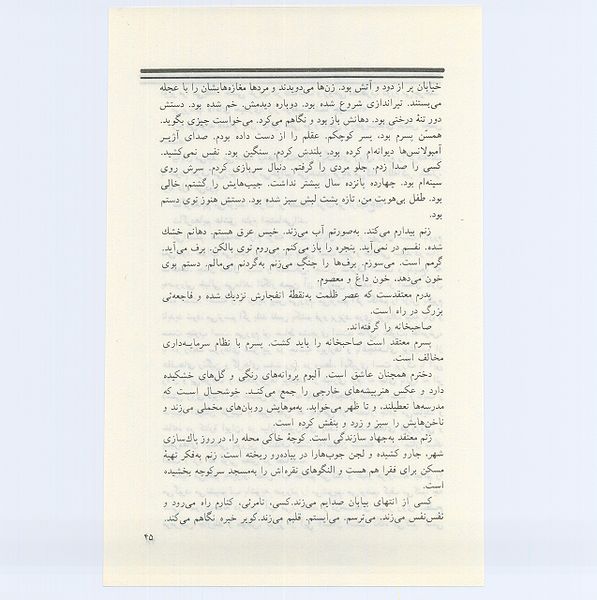 خیابان پر از دود و آتش بود. زن‌ها می‌دویدند و مردها مغازه‌هایشان را با عجله
می‌بستند. تیراندازی شروع شده بود. دوباره دیدمش. خم شده بود. دستش
دور تنهٔ درختی بود. دهانش باز بود و نگاهم می‌کرد. می‌خواست چیزی بگوید.
همسنّ پسرم بود، پسر کوچکم. عقلم را از دست داده بودم. صدای آژیر
آمبولانس‌ها دیوانه‌ام کرده بود. بلندش کردم. سنگین بود. نفس نمی‌کشید.
کسی را صدا زدم. جلو مردی را گرفتم. دنبال سربازی کردم. سرش روی
سینه‌ام بود. چهارده پانزده سال بیشتر نداشت. جیب‌هایش را گشتم، خالی
بود. طفل بی‌هویت من، تازه پشت لبش سبز شده بود. دستش هنوز توی دستم
بود.
زنم بیدارم می‌کند. به‌صورتم آب می‌زند. خیس عرق هستم. دهانم خشك
شده. نفسم در نمی‌آید. پنجره را باز می‌کنم. می‌روم توی بالکن. برف می‌آید.
گرمم است. می‌سوزم. برف‌ها را چنگ می‌زنم به‌گردنم می‌مالم. دستم بوی
خون می‌دهد، خون داغ و معصوم.
پدرم معتقدست که عصر ظلمت به‌نقطهٔ انفجارش نزدیك شده و فاجعه‌ئی
بزرگ در راه است.
صاحبخانه را گرفته‌اند.
پسرم معتقد است صاحبخانه را باید کشت. پسرم با نظام سرمایه‌داری
مخالف است.
دخترم همچنان عاشق است. آلبوم پروانه‌های رنگی و گل‌های خشکیده
دارد و عکس هنرپیشه‌های خارجی را جمع می‌کند. خوشحال است که
مدرسه‌ها تعطیلند، و تا ظهر می‌خوابد. به‌موهایش روبان‌های مخملی می‌زند و
ناخن‌هایش را سبز و زرد و بنفش کرده است.
زنم معتقد به‌جهاد سازندگی است. کوچهٔ خاکی محله را، در روز پاك‌سازی
شهر، جارو کشیده و لجن جوب‌هارا در پیاده‌رو ریخته است. زنم به‌فکر تهیهٔ
مسکن برای فقرا هم هست و النگوهای نقره‌اش را به‌مسجد سرکوچه بخشیده
است.
کسی از انتهای بیابان صدایم می‌زند.کسی، نامرئی، کنارم راه می‌رود و
نفس‌نفس می‌زند. می‌ترسم. می‌ایستم. قلبم می‌زند.کویر خیره نگاهم می‌کند.
۴۵